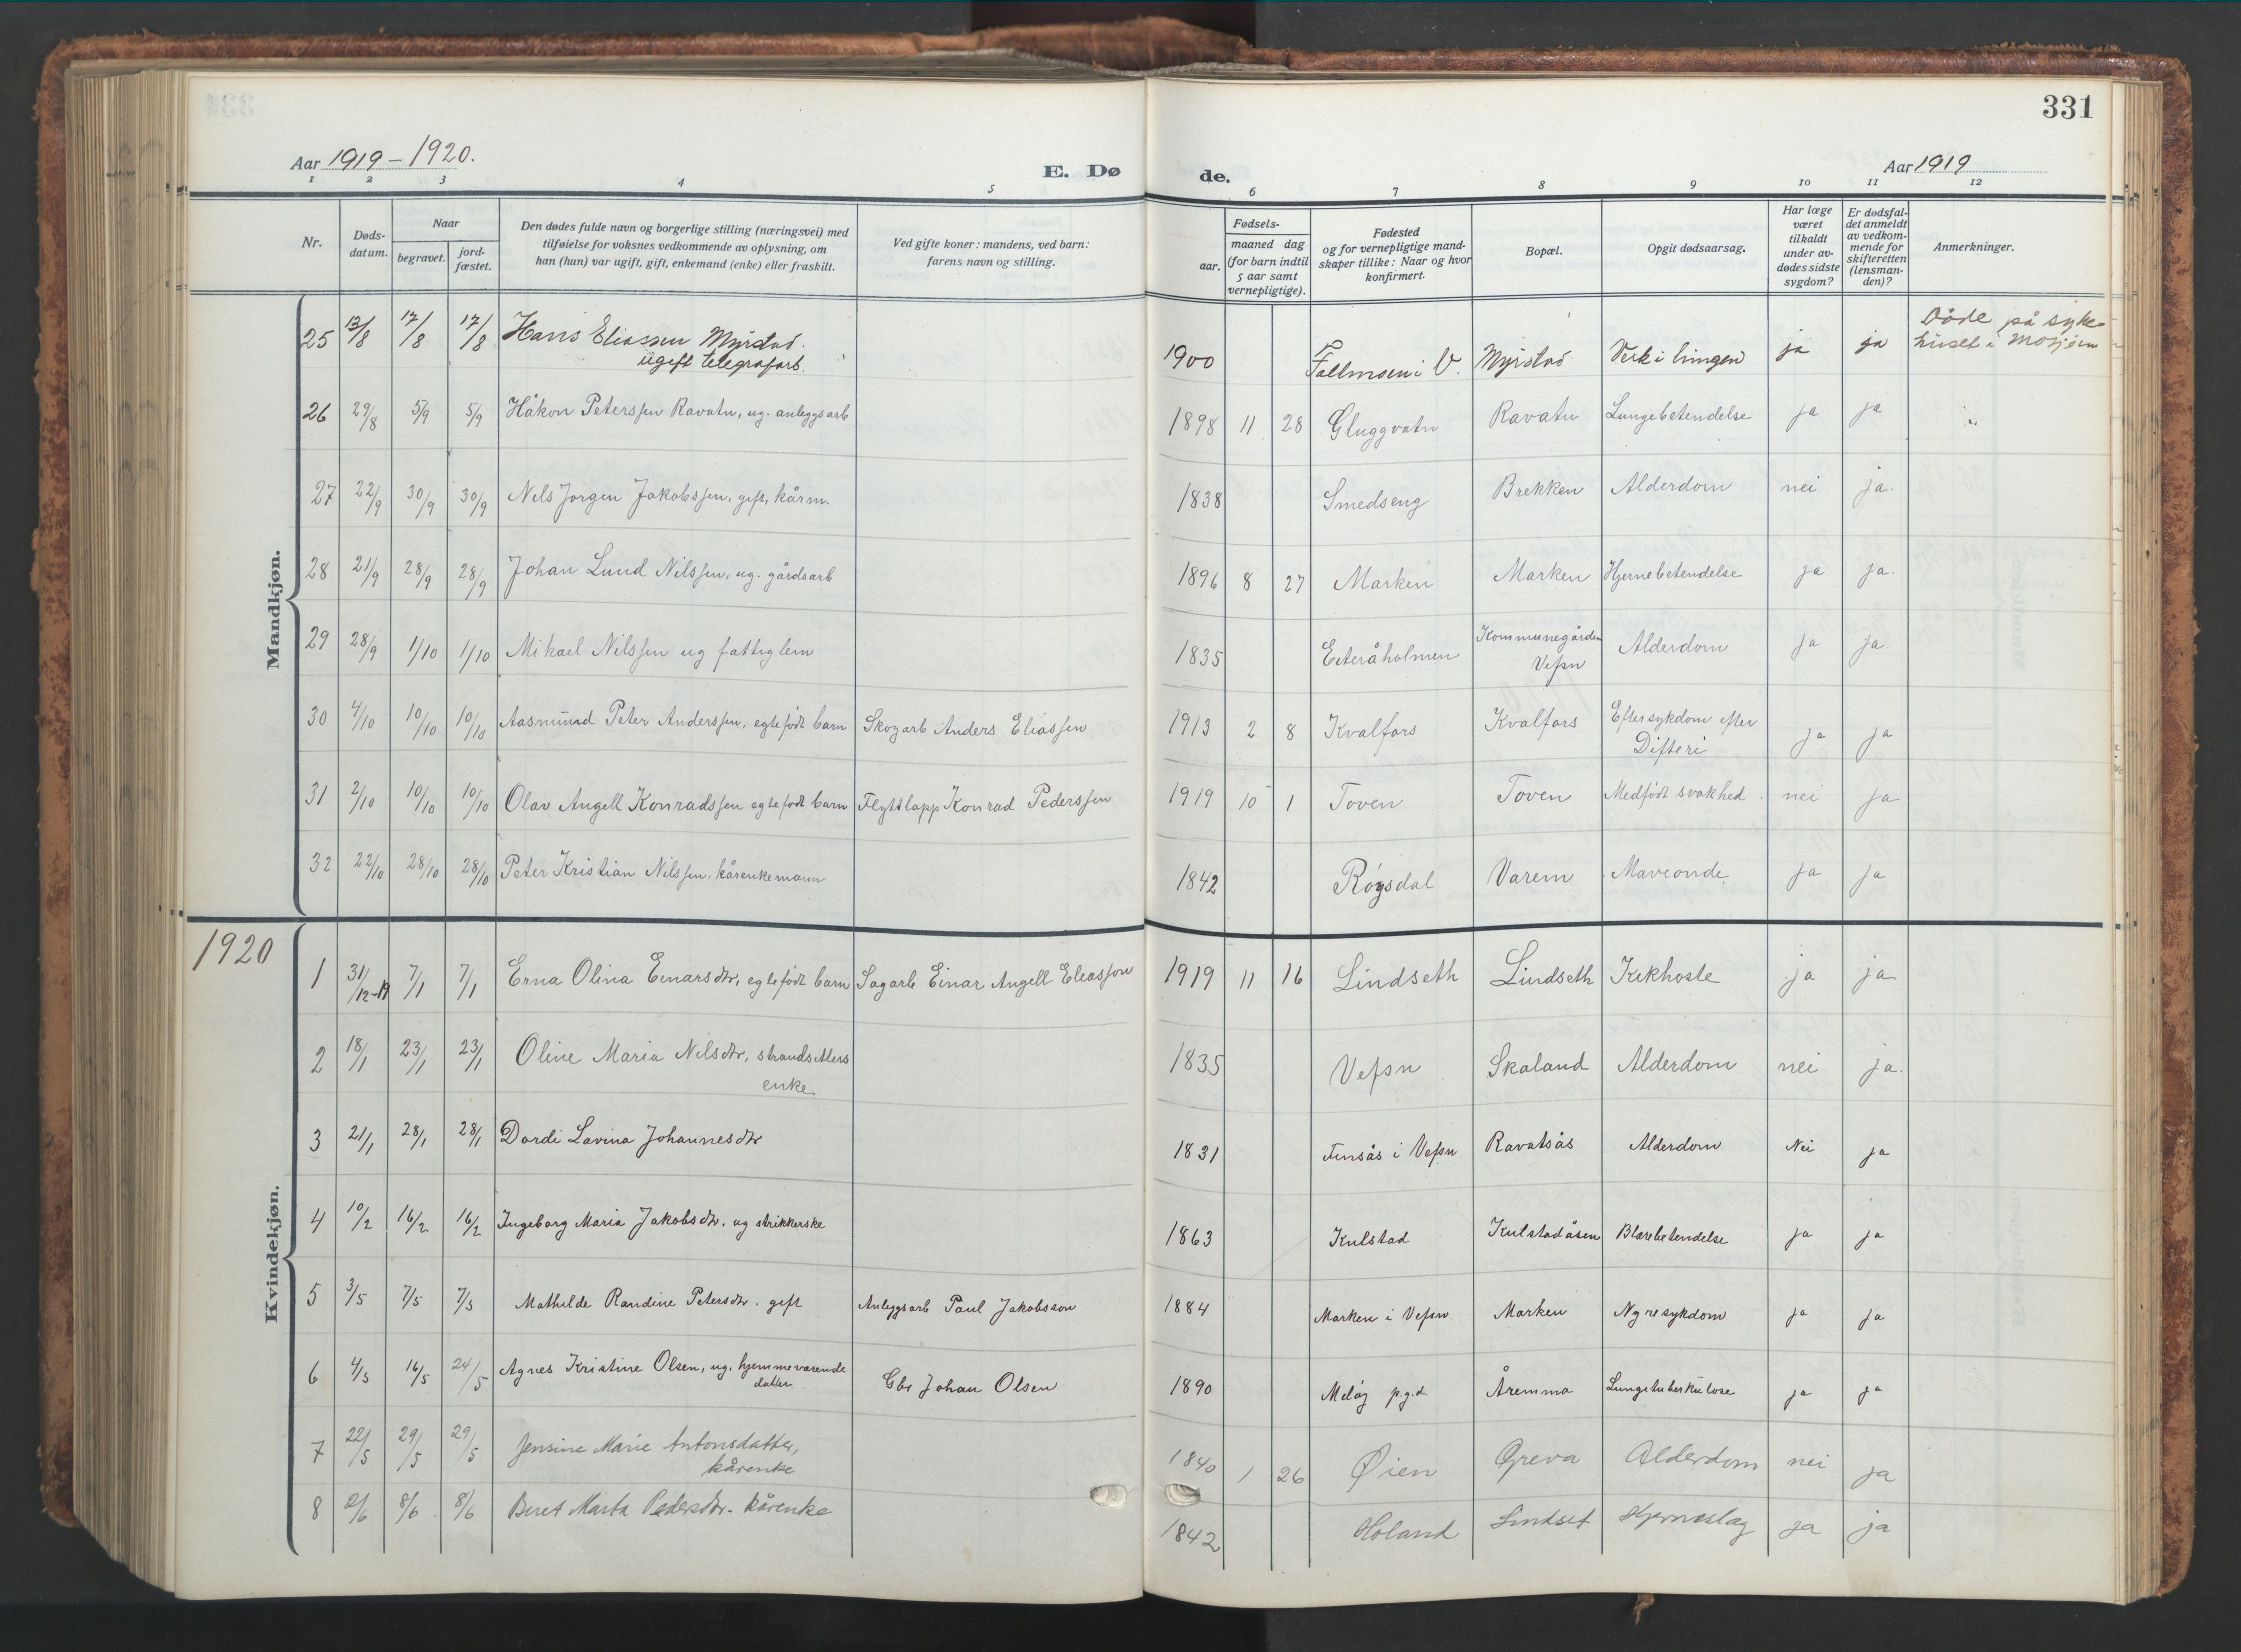 331
Aar 1919 – 1920.
E. Dø
de.
Aar 1919
1 2 3 4 5 6 7 8 9 10 11 12
Nr.
Døds-
datum.
Naar
begravet.
jord-
fæstet.
Den dødes fulde navn og borgerlige stilling (næringsvei) med
tilføielse for voksnes vedkommende av oplysning, om
han (hun) var ugift, gift, enkemand (enke) eller fraskilt.
Ved gifte koner: mandens, ved barn:
farens navn og stilling.
Fødsels-
aar.
maaned dag
(for barn indtil
5 aar samt
vernepligtige).
Fødested
og for vernepligtige mand-
skaper tillike: Naar og hvor
konfirmert.
Bopæl.
Opgit dødsaarsag.
Har læge
været
tilkaldt
under av-
dødes sidste
sygdom?
Er dødsfal-
det anmeldt
av vedkom-
mende for
skifteretten
(lensman-
den)?
Anmerkninger.
Mandkjøn.
25 13/8 17/8 17/8 Hans Eliassen Myrstad. 1900 i V. Myrstad ja ja Døde på syke-
ugift telegrafarb. huset i Mosjøen
26 29/8 5/9 5/9 Håkon Peterssen Ravatn, ug. anleggsarb 1898 11 28 Gluggvatn Ravatn Lungebetendelse ja ja
27 22/9 30/9 30/9 Nils Jørgen Jakobssen, gift, kårm. 1838 Smedseng Brekken Alderdom nei ja.
28 21/9 28/9 28/9 Johan Lund Nilssen, ug. gårdsarb 1896 8 27 Marken Marken Hjernebetendelse ja ja.
29 28/9 1/10 1/10 Mikael Nilssen ug fattiglem 1835 Eiteråholmen Kommunegården Alderdom ja ja.
Vefsn
30 4/10 10/10 10/10 Aasmund Peter Anderssen, egtefødt barn Skogarb Anders Eliassen 1913 2 8 Kvalfors Kvalfors Eftersykdom efter ja ja
Difteri
31 2/10 10/10 10/10 Olav Angell Konradssen egtefødt barn Flyttlapp Konrad Pederssen 1919 10 1 Toven Toven Medfødt svakhed. nei ja
32 22/10 28/10 28/10 Peter Kristian Nilssen. kårenkemann 1842 Røgsdal Varem Maveonde. ja ja
1920
Kvindekjøn.
1 31/12-19 7/1 7/1 Erna Olina Einarsdtr, egtefødt barn Sagarb Einar Angell Eleasson 1919 11 16 Lindseth Lindseth Kikhoste ja ja
2 18/1 23/1 23/1 Oline Maria Nilsdtr, strandsitters 1835 Vefsn Skaland Alderdom nei ja.
enke
3 21/1 28/1 28/1 Dordi Lavina Johannesdtr 1831 Finsås i Vefsn Ravatsås Alderdom Nei ja
4 10/2 16/2 16/2 Ingeborg Maria Jakobsdtr. ug strikkerske 1863 Kulstad Kulstadåsen Blærebetendelse ja ja
5 3/5 7/5 7/5 Mathilde Randine Petersdtr. gift Anleggsarb Paul Jakobsson 1884 Marken i Vefsn Marken Nyresykdom ja ja
6 4/5 16/5 24/5 Agnes Kristine Olsen, ug. hjemmeværende Gbr Johan Olsen 1890 Meløy p.g.d. Åremma Lungetuberkulose ja ja
datter
7 22/5 29/5 29/5 Jensine Marie Antonsdatter, 1840 1 26 Øien Greva Alderdom nei ja
kårenke
8 2/6 8/6 8/6 Beret Marta Pedersdtr. kårenke 1842 Holand Lindset Hjerneslag ja ja